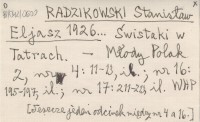 RADZIKOWSKI Stanisław
Eljasz 1926... Świstaki w
Tatrach. — Młody Polak
2, nr 4: 11-13, il.; nr 16:
195-197, il.; nr 17: 211-213, il. WKP
[Jeszcze jeden odcinek między nr 4 a 16.]